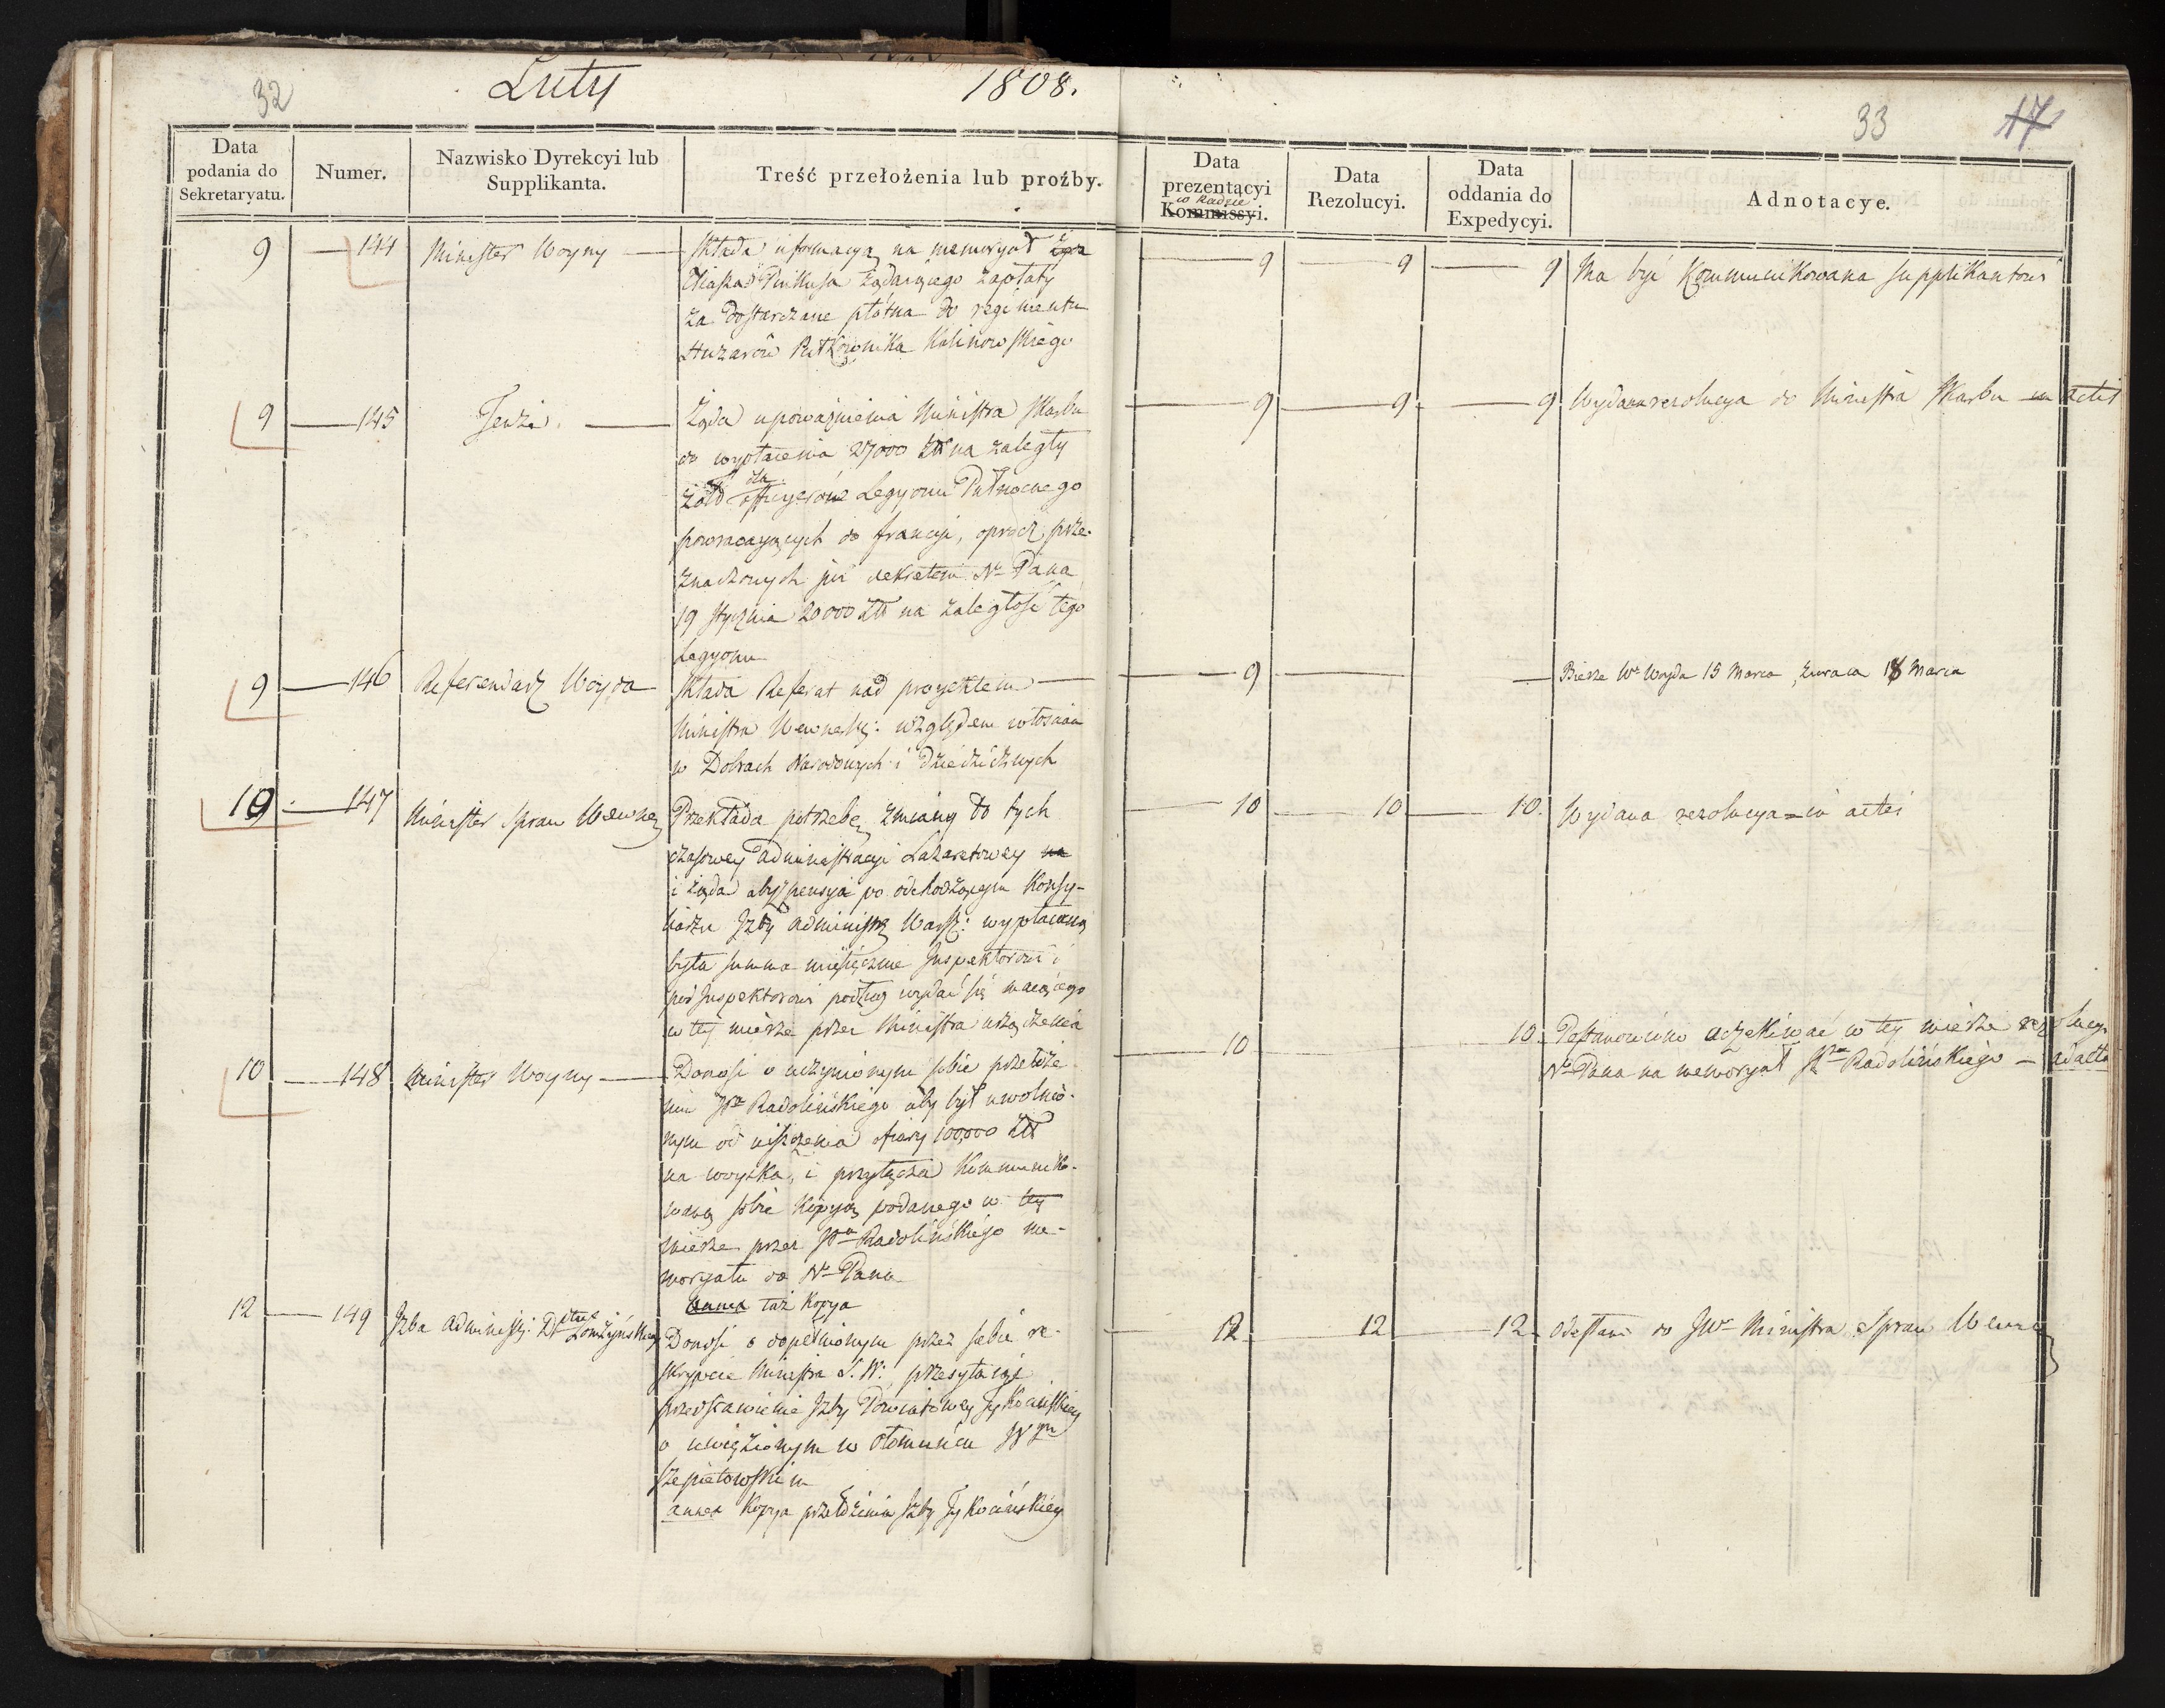 32
Luty 1808.
33 17
Data podania do Sekretaryatu.
Numer.
Nazwisko Dyrekcyi lub Supplikanta.
Treść przełożenia lub proźby.
Data prezentacyi w Radzie Kommissyi.
Data Rezolucyi.
Data oddania do Expedycyi.
Adnotacye.
9 — 144 Minister Woyny — Składa informacyą na memoryał
Pinkusa żądaiącego zapłaty
za dostarczane płótna do regimentu
Huzarów Pułkownika Kalinowskiego
9 9 9 Ma być kommunikowana supplikantowi
9 — 145 Tenże. — Żąda upoważnienia Ministra Skarbu
do wypłacenia 27000 Złł na zaległy
żołd dla officyerów Legyonu Pułnocnego
powracaiących do francyi, oprócz prze-
znaczonych już dekretem N° Pana
19 Stycznia 20000 Złł na zaległość tego
Legyonu
9 9 9 Wydana rezolucya do Ministra Skarbu in actis
9 — 146 Referendarz Woyda — Składa Referat nad proyektem —
Ministra Wewnętrz: względem włościan
w Dobrach Narodowych i dziedzicznych
9 — — Bierze W° Woyda 15 Marca, zwraca 18 Marca
10 — 147 Minister Spraw Wewnę Przekłada potrzebę zmiany do tych
czasowey administracyi Lazaretowey na
i żąda aby pensyia po odchodzącym Konsy-
liarzu Izby administr Warsz: wypłacaną
była summa miesięcznie Inspektorowi i
pod Inspektorowi podług wydać się maiącego
w tey mierze przez Ministra urządzenia
10 10 10. Wydana rezolucya = in actis
10 — 148 Minister Woyny — Donosi o uczynionym sobie przełoże-
niu JPa Radolińskiego aby był uwolnio-
nym od uiszczenia ofiary 100,000 Złł
na woyska, i przyłącza kommuniko-
waną sobie kopyą podanego w tey
mierze przez JPa Radolińskiego me-
moryału do N° Pana
annex taż kopya
10 10. Postanowiono oczekiwać w tey mierze rezolucyi
N° Pana na memoryał JPa Radolińskiego — ad acta
12 — 149 Izba administr: Dptu Łomżyńskiey Donosi o dopełnionym przez siebie re-
skrypcie Ministra S. W: przesyłaiąc
przedstawienie Izby Powiatowey Tykocińskiey
o uwięzionym w Ołomuńcu JP
Szepietowskim
annex Kopya przełożenia Izby Tykocińskiey
12 12 12 Odesłano do JW° Ministra Spraw Wewnę